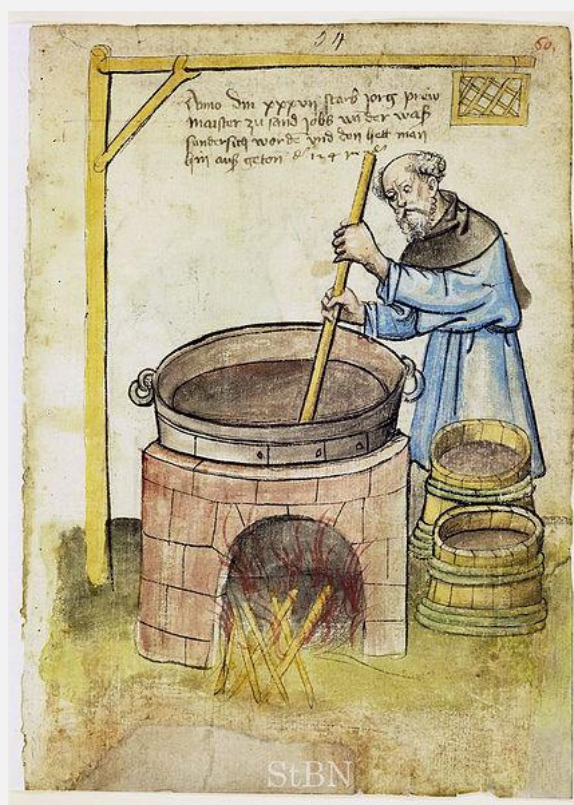 54
60.
Anno dm xxxvii starb jorg prew
maister zu sand jobs wan der waß
sundersich worden vnd den hett man
hin auß geton
StBN